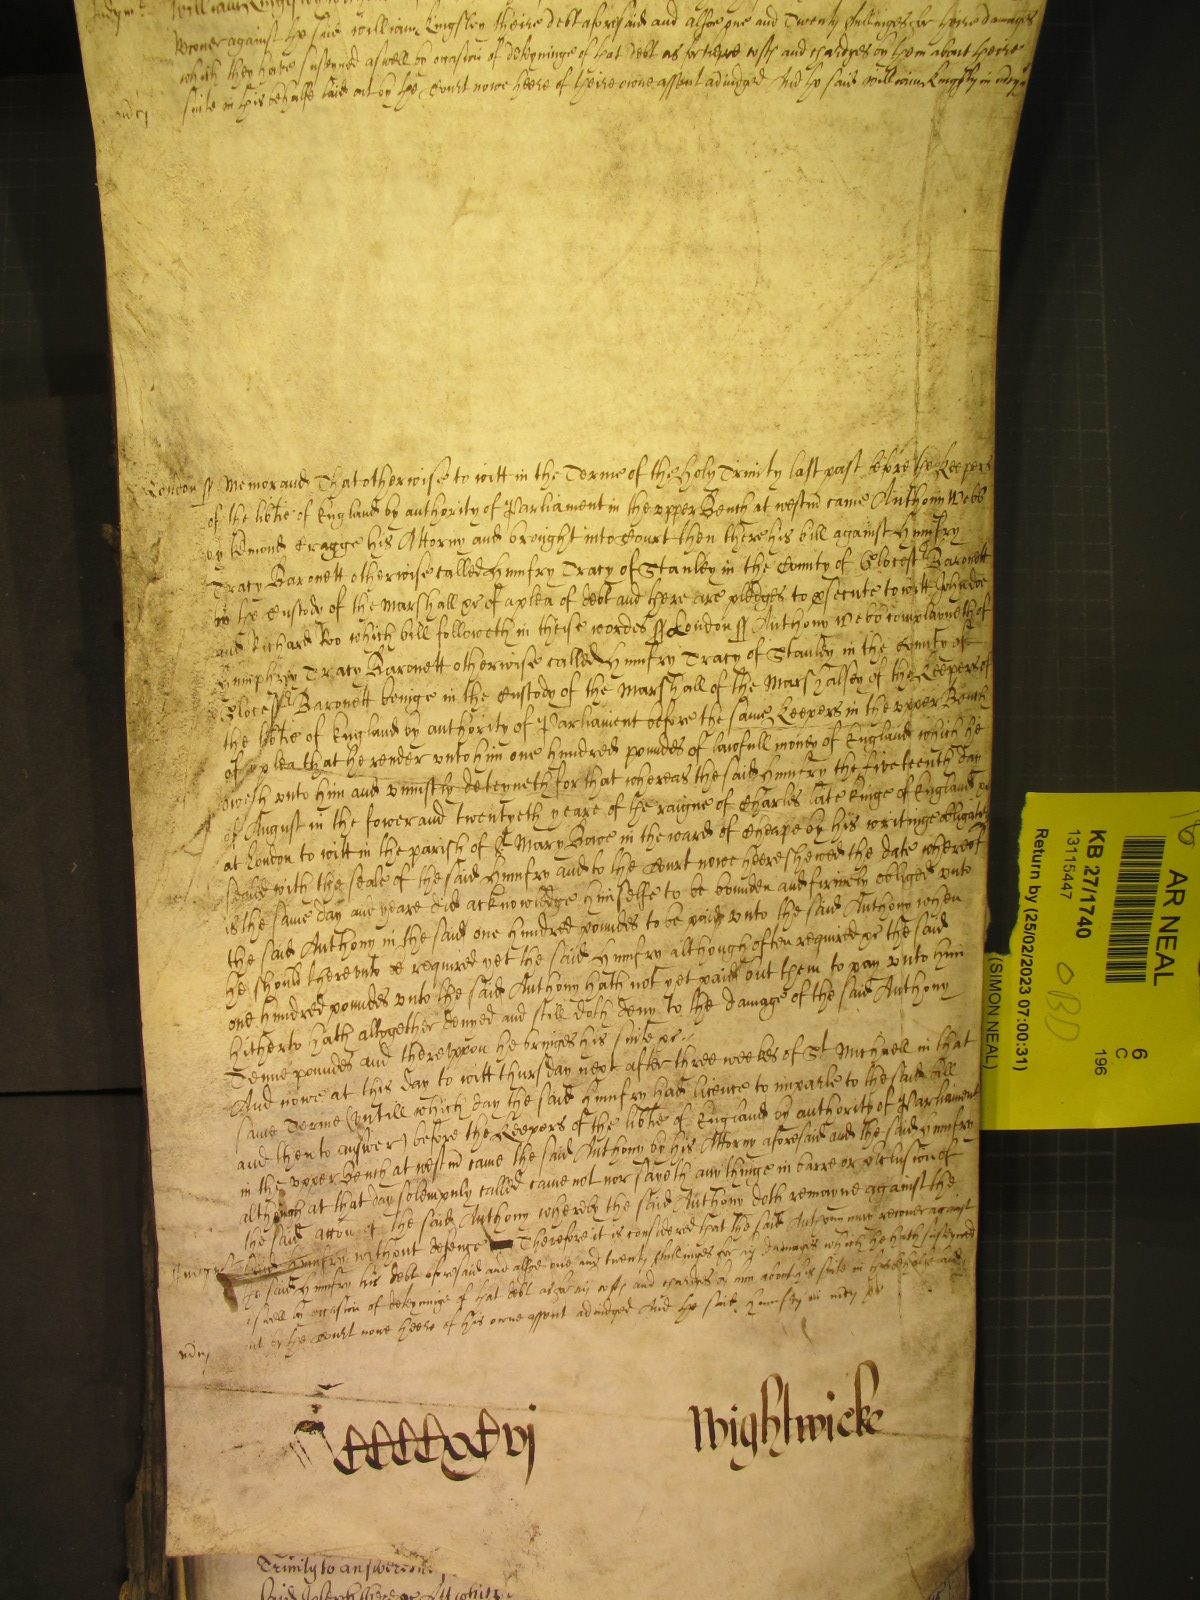 Recover against the said William Kingsley theire Debt aforesaid and alsoe one and Twenty shillinges for theire damages
which they have susteyned aswell by occasion of deteyninge of that Debt as for theire costs and chardges by them about theire
suite in this behalfe laid out by the Court nowe heere of theire owne assent adiudged And the said William Kingsley in mcy &c
London ss Memorand That otherwise to witt in the Terme of the Holy Trinity last past before the Keepers
of the libtie of England by authority of Parliament in the upper Bench at Westm came Anthony Webb
by Edmond Cragge his Attorny and brought into Court then there his bill against Humfry
Tracy Baronett otherwise called Humfry Tracy of Stanley in the County of Glocest Baronett
in the Custody of the Marshall &c of a plea of debt and there are pledges to psecute to witt John doe
and Richard Roo which bill followeth in theise wordes ss London ss Anthony Webb complayneth of
Humphry Tracy Baronett otherwise called Humfry Tracy of Stanley in the County of
Glocest Baronett beinge in the Custody of the Marshall of the Marshalsey of the Keepers of
the libtie of England by authority of Parliament before the same Keepers in the upper Bench
of a plea that he render unto him one hundred poundes of lawfull money of England which he
oweth unto him and uniustly deteyneth for that whereas the said Humfry the fiveteenth day
of August in the fower and twentyeth yeare of the raigne of Charles late Kinge of England &c
at London to witt in the parish of St Mary Bowe in the ward of Cheape by his writinge obligatory
sealed with the seale of the said Humfry and to the Court nowe heere shewed the date whereof
is the same day and yeare did acknowledge himselfe to be bounden and firmely obliged unto
the said Anthony in the said one hundred poundes to be paid unto the said Anthony when
he should thereunto be required yet the said Humfry although often required &c the said
one hundred poundes unto the said Anthony hath not yet paid but them to pay unto him
hitherto hath altogether denyed and still doth deny to the damage of the said Anthony
Tenne poundes and thereuppon he bringes his suite &c
And nowe at this day to witt thursday next after three weekes of St Michaell in that
same Terme (untill which day the said Humfry had licence to imparle to the said bill
and then to answer) before the Keepers of the libtie of England by authority of Parliament
in the upper bench at westm came the said Anthony by his Attorny aforesaid and the said Humfry
although at that day solempnly called came not nor sayeth any thinge in barre or preclusion of
the said accon of the said Anthony whereby the said Anthony doth remayne against the
said Humfry without defence Therefore it is considered that the said Anthony may recover against
the said Humfry his debt aforesaid and alsoe one and twenty shillinges for his damages which he hath susteyned
aswell by occasion of deteyninge of that debt as for his costs and chardges by him about his suite in this behalfe laid
out by the Court nowe heere of his owne assent adiudged And the said Humfry in mcy &c
mcy
CCCCxxvj
Wightwicke
Trinity to answere
AR NEAL
KB 27/1740
13115447
Return by (25/02/2023 07:00:31)
(SIMON NEAL)
6
C
196